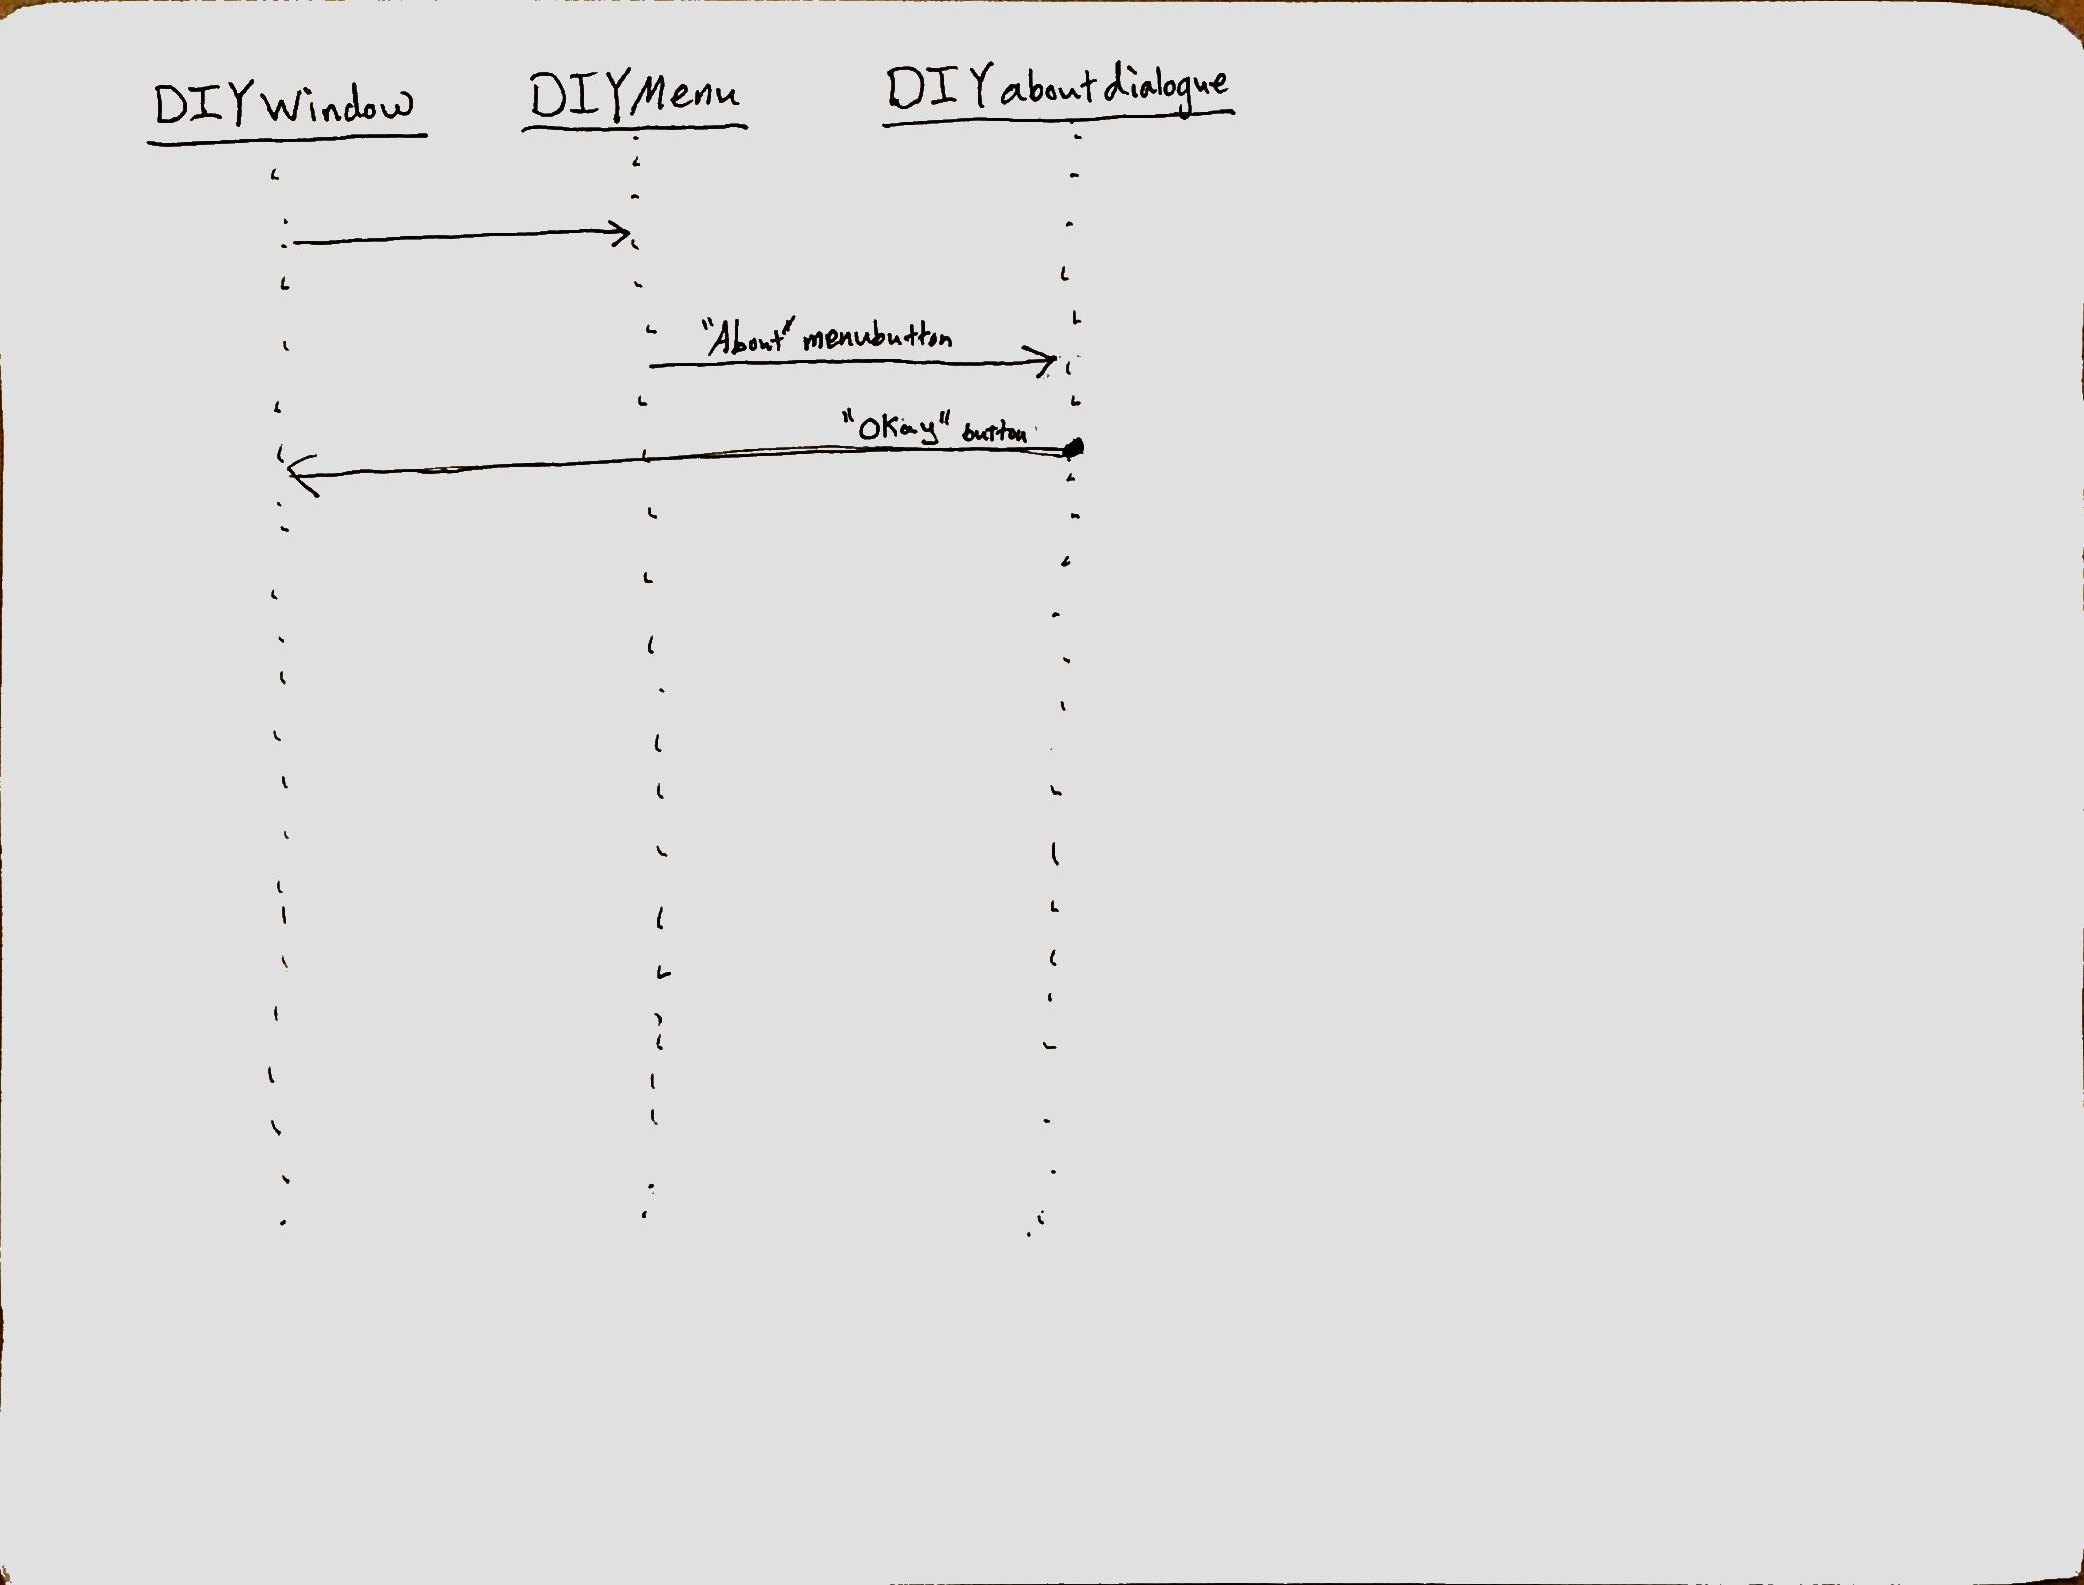 DIYWindow
DIYMenu
DIYaboutdialogue
"About" menubutton
"Okay" button